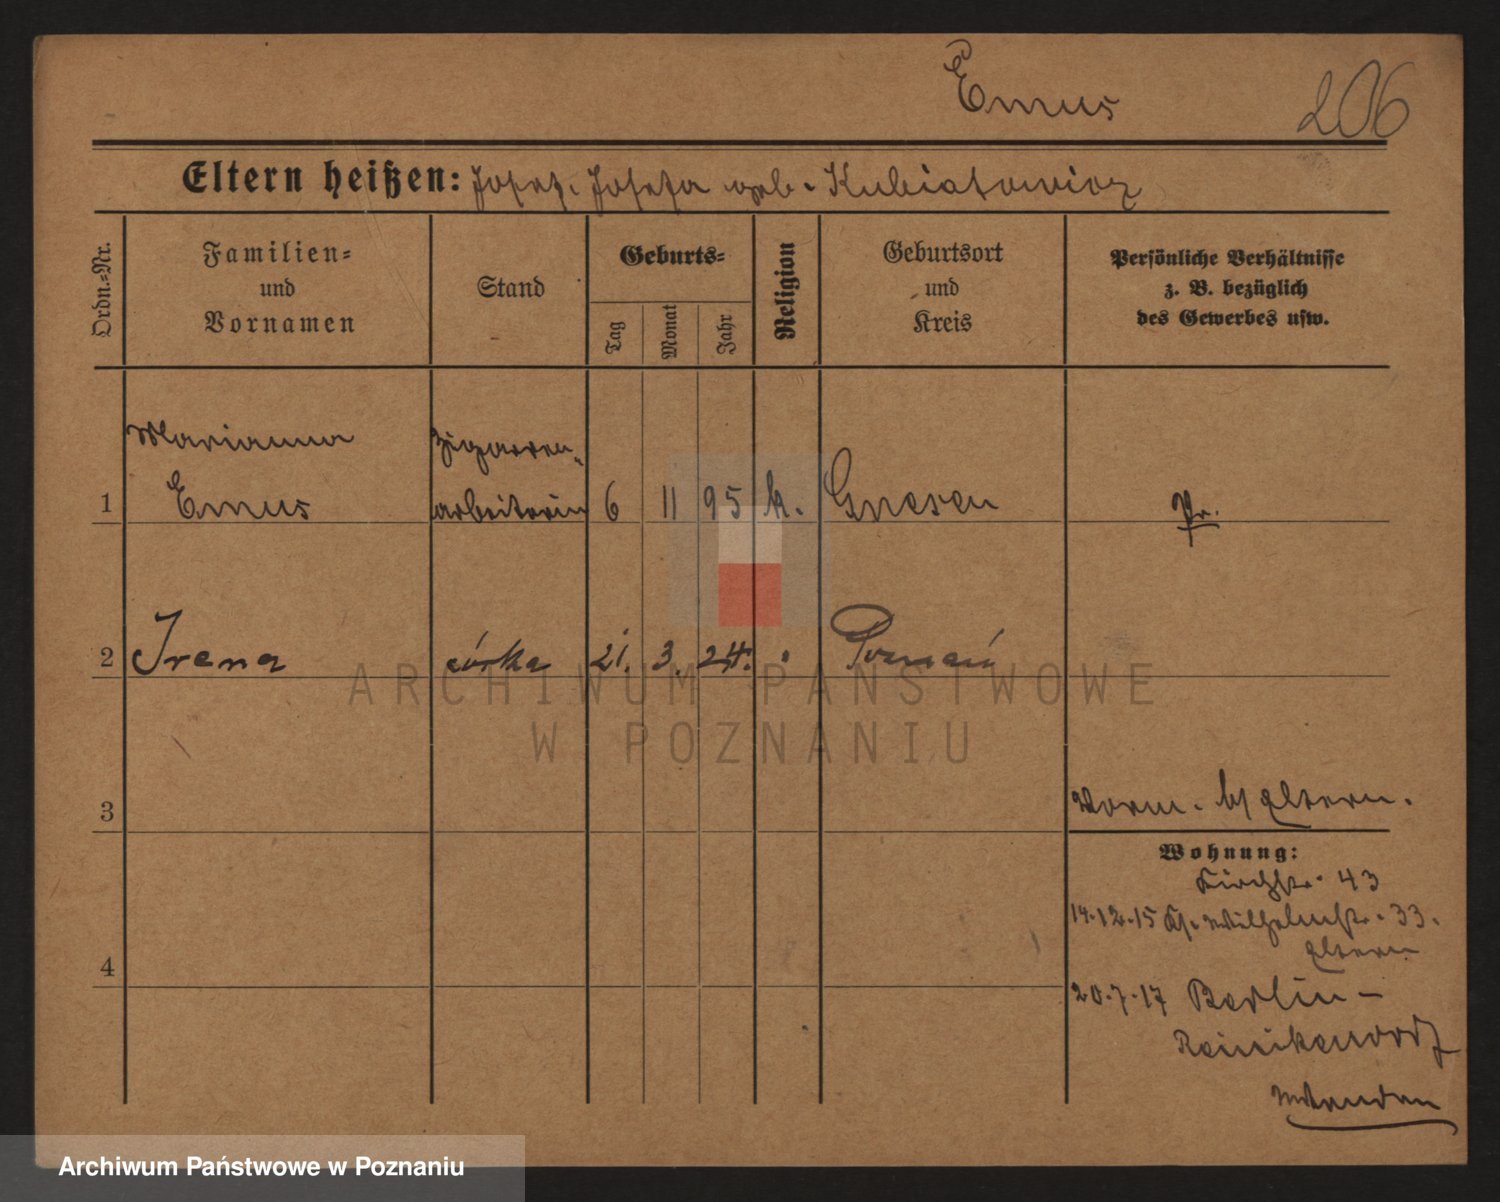 Emus
206
Eltern heißen: Josef. Josefa geb. Kubiatowicz
Ordn.-Nr.
Familien-
und
Vornamen
Stand
Geburts-
Tag
Monat
Jahr
Religion
Geburtsort
und
Kreis
Persönliche Verhältnisse
z. B. bezüglich
des Gewerbes usw.
Marianna Zigarren-
1 Emus arbeiterin 6 11 95 k. Gnesen Pr.
2 Irena córka 21. 3. 24. Poznań
3
Vorm. b/ Eltern.
Wohnung:
Kirchstr. 43
14.12.15 Wilhelmstr. 33.
Eltern
4
20.7.17 Berlin-
Reinikendorf
ARCHIWUM PAŃSTWOWE
W POZNANIU
Archiwum Państwowe w Poznaniu